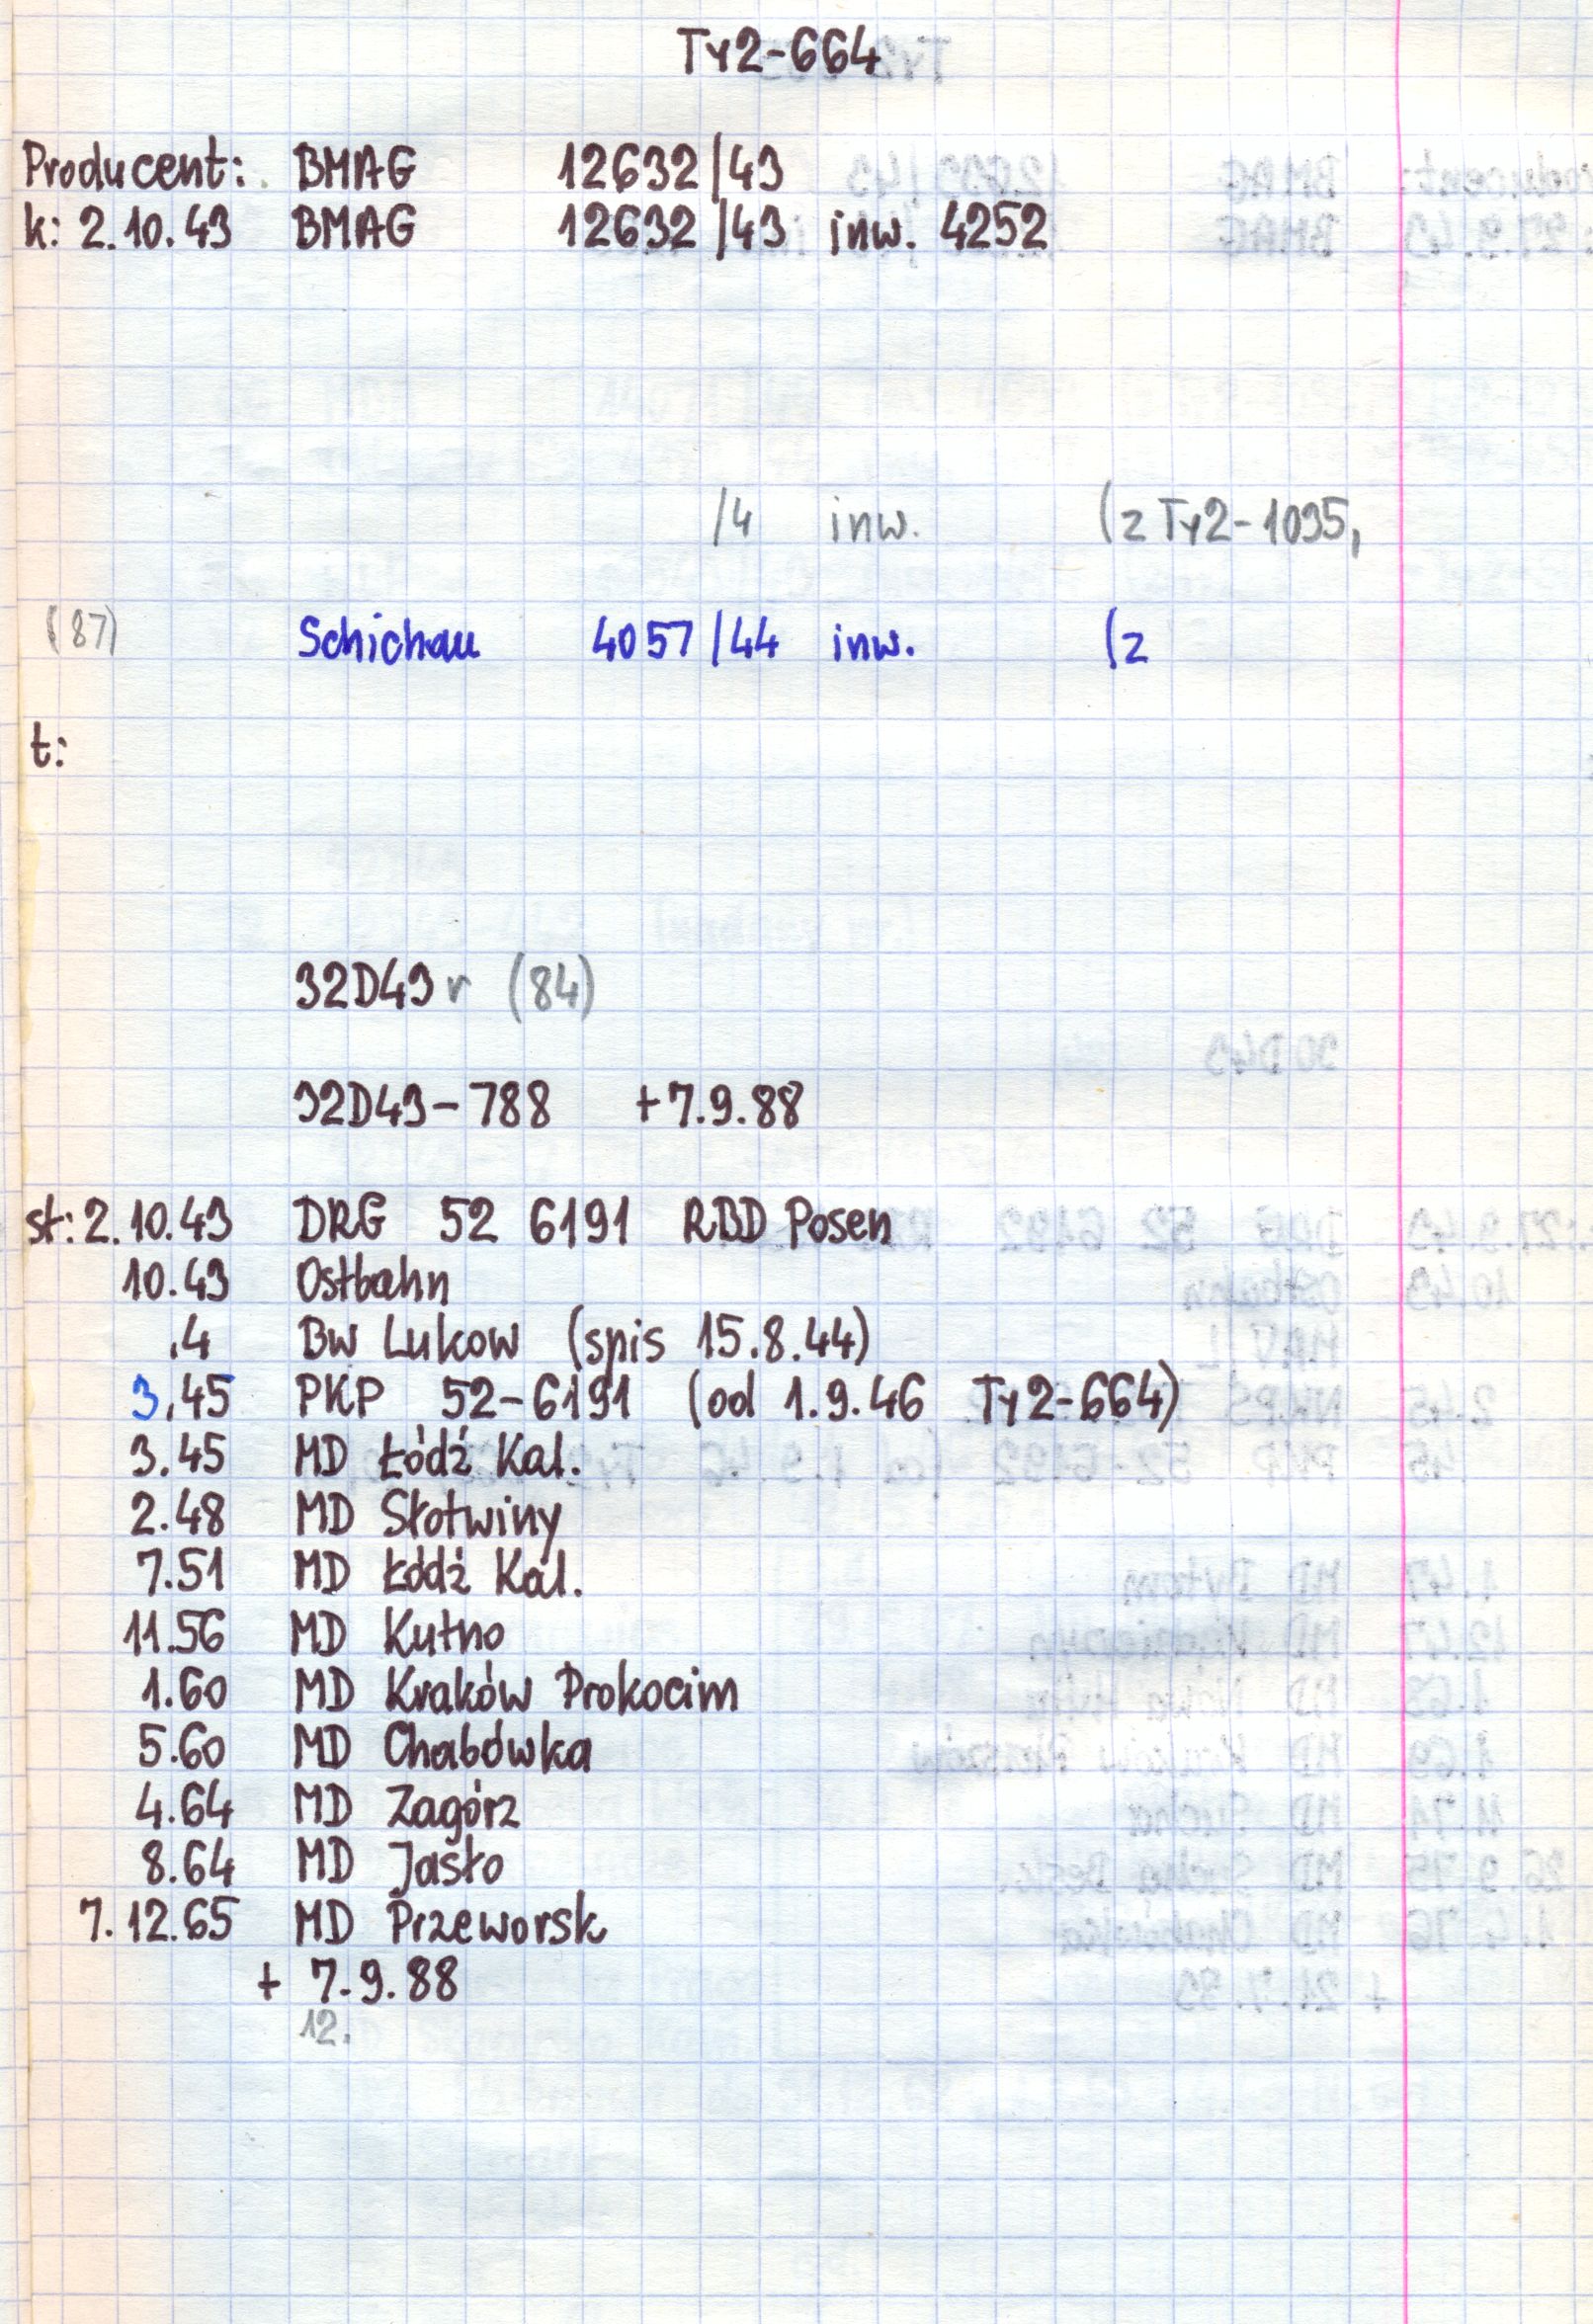 Ty2-664
Producent: BMAG 12632/43
k: 2.10.43 BMAG 12632/43 inw. 4252
/4 inw. (z Ty2-1095,
(87) Schichau 4057/44 inw. (z
t:
32D43 r (84)
32D43-788 +7.9.88
st: 2.10.43 DRG 52 6191 RBD Posen
10.43 Ostbahn
.4 Bw Lukow (spis 15.8.44)
3.45 PKP 52-6191 (od 1.9.46 Ty2-664)
3.45 MD Łódź Kal.
2.48 MD Słotwiny
7.51 MD Łódź Kal.
11.56 MD Kutno
1.60 MD Kraków Prokocim
5.60 MD Chabówka
4.64 MD Zagórz
8.64 MD Jasło
7.12.65 MD Przeworsk
+ 7.9.88
12.